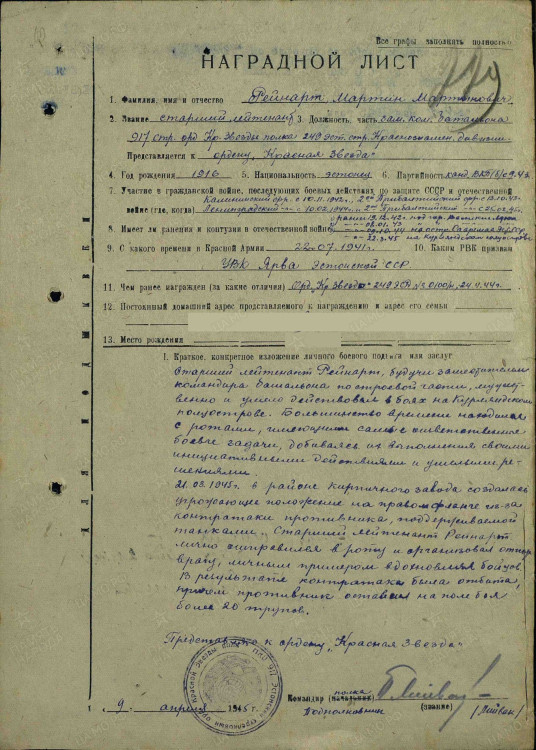 Все графы заполнять полностью
НАГРАДНОЙ ЛИСТ
1. Фамилия, имя и отчество Рейнарт Мартин Мартинович
2. Звание старший лейтенант 3. Должность, часть зам. ком. батальона
917 стр. орд. Кр. Звезды полка 249 эст. стр. Краснознамен. дивизии
Представляется к ордену „Красная Звезда“
4. Год рождения 1916 5. Национальность эстонец 6. Партийность канд. ВКП(б)
7. Участие в гражданской войне, последующих боевых действиях по защите СССР и отечественной
Калининский фр. с 10.11.42 г., 2ой Прибалтийский фр.
войне (где, когда) Ленинградский
8. Имеет ли ранения и контузии в отечественной войне
9. С какого времени в Красной Армии 22.07.1941 г. 10. Каким РВК призван
УВК Ярва Эстонской ССР
11. Чем ранее награжден (за какие отличия) Орд. „Кр. Звезда“ 249 ЭСД
12. Постоянный домашний адрес представляемого к награждению и адрес его семьи
13. Место рождения
I. Краткое, конкретное изложение личного боевого подвига или заслуг
Старший лейтенант Рейнарт, будучи заместителем
командира батальона по строевой части, мужест-
венно и умело действовал в боях на Курляндском
полуострове. Большинство времени находился
с ротами, имеющими самые ответственные
боевые задачи, добиваясь их выполнения своими
инициативными действиями и умелыми ре-
шениями.
21.03.1945 г. в районе кирпичного завода создалась
угрожающее положение на правом фланге из-за
контратаки противника, поддерживаемой
танками. Старший лейтенант Рейнарт
лично отправился в роту и организовал отпор
врагу, личным примером вдохновляя бойцов.
В результате контратака была отбита,
причем противник оставил на поле боя
более 20 трупов.
Представляю к ордену „Красная Звезда“
Командир (начальник) полка
Подполковник (звание) /Лийвак/
„9“ апреля 1945 г.